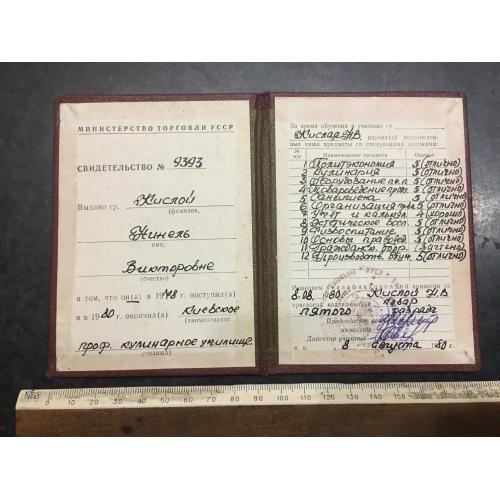 МИНИСТЕРСТВО ТОРГОВЛИ УССР
СВИДЕТЕЛЬСТВО № 9393
Выдано гр. Кислой
(фамилия,
Нинель
имя,
Викторовне
отчество)
в том, что он(а) в 1978 поступил(а)
и в 1980 окончил(а) Киевское
(наименование
проф. кулинарное училище
училища)
За время обучения в училище гр.
Кислая Н.В. изучил(а) перечислен-
ные ниже предметы со следующими оценками:
№ Наименование предмета Оценка
1 Политэкономия 5 (отлично)
2 Кулинария 5 (отлично)
3 Оборудование п.о.п. 5 (отлично)
4 Товароведение прод. 5 (отлично)
5 Сангигиена 5 (отлично)
6 Организация 5 (отлично)
7 Учёт и калькул. 4 (хорошо)
8 Эстетическое восп. 5 (отлично)
9 Физвоспитание 5 (отлично)
10 Основы правовед. 5 (отлично)
11 Гражданск. обор. (зачтено)
12 Производств. обуч. 5 (отлично)
Решением квалификационной комиссии от
8.08. 1980 г. Кислой Н.В.
присвоена квалификация повар
пятого разряда
Председатель
комиссии
Директор училища
м. п. 8 августа 1980 г.
0 10 20 30 40 50 60 70 80 90 100 110 120 130 140 150 160 170 180 190 200 210 220 230